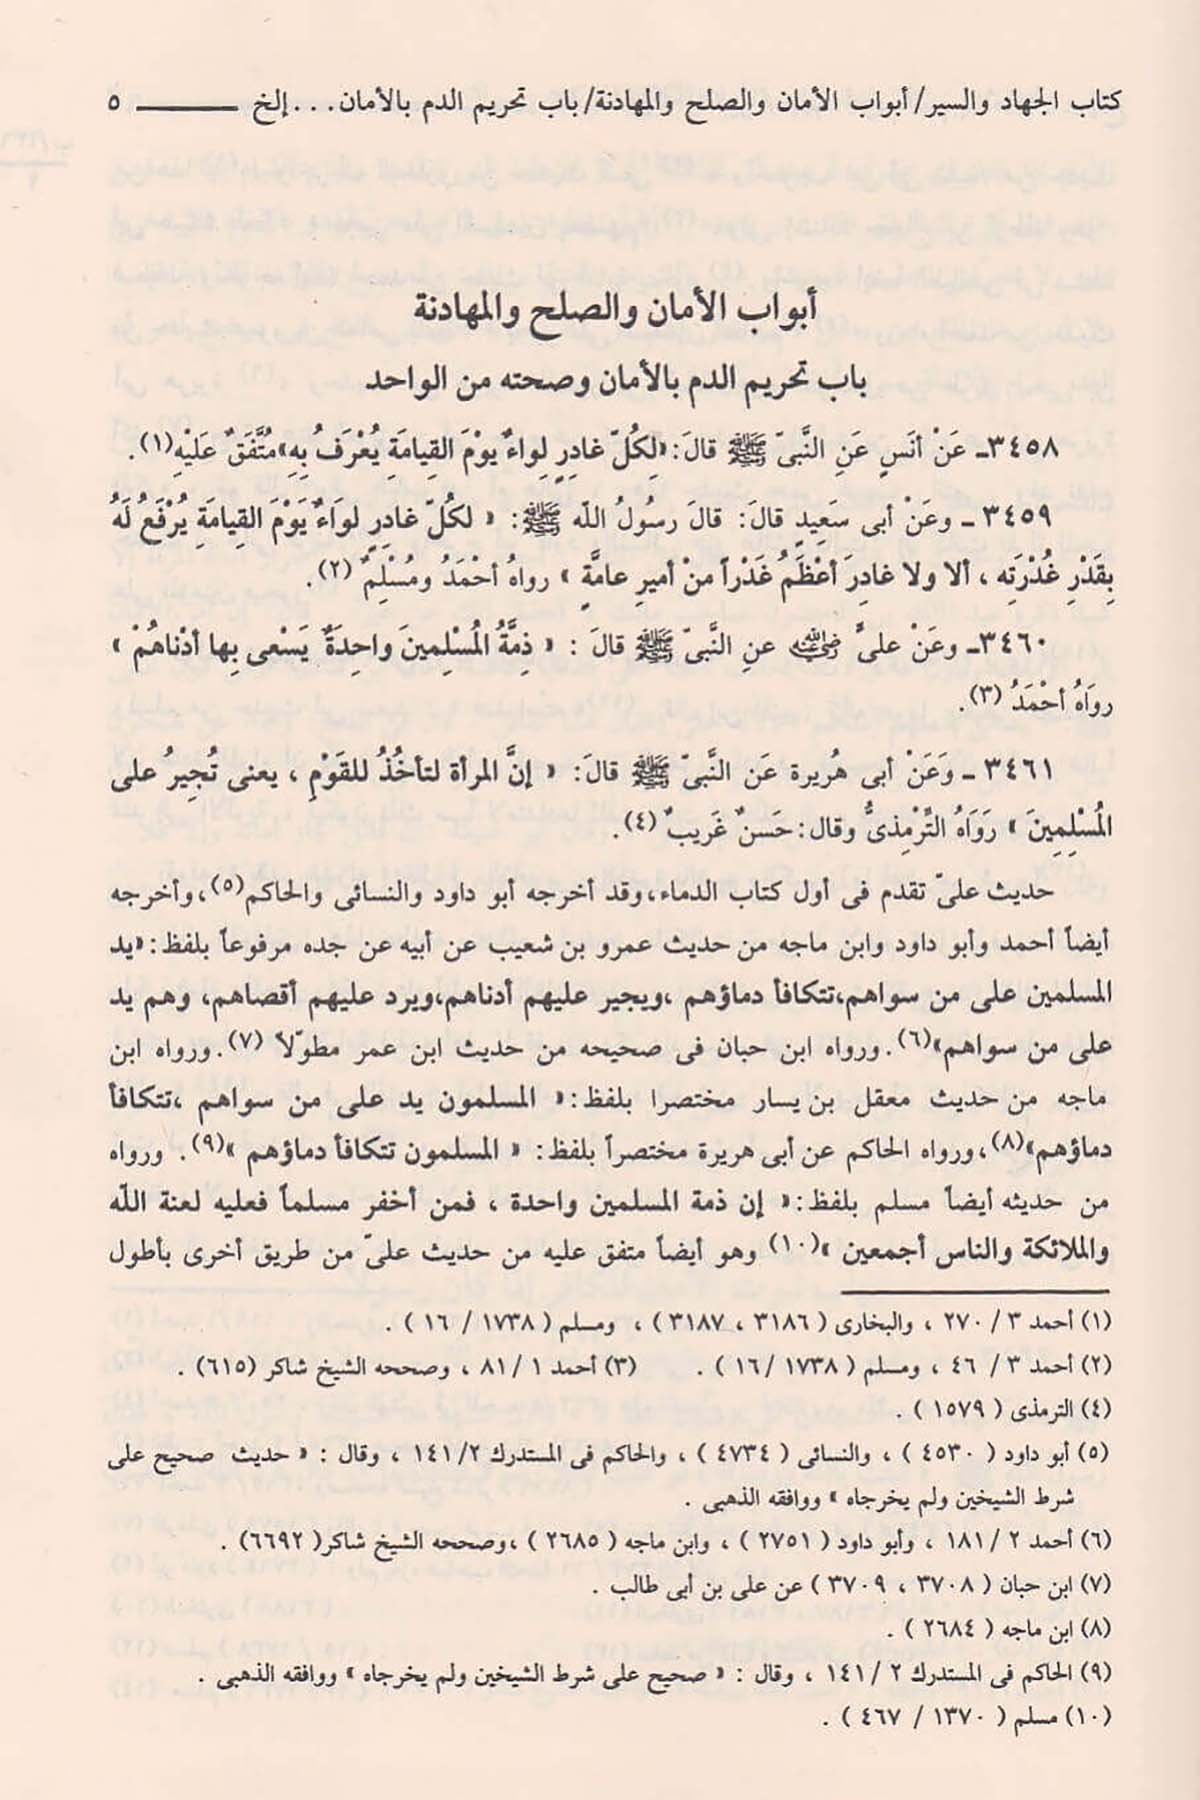 كتاب الجهاد والسير/ أبواب الأمان والصلح والمهادنة/ باب تحريم الدم بالأمان... إلخ ــــــــ ٥
أبواب الأمان والصلح والمهادنة
باب تحريم الدم بالأمان وصحته من الواحد
٣٤٥٨ـ عَنْ أنَسٍ عَنِ النَّبىّ ﷺ قالَ: «لِكُلّ غادِرٍ لِواءٌ يوْمَ القِيامَةِ يُعْرَفُ بِهِ» مُتَّفَقٌ عَلَيْهِ(١).
٣٤٥٩ ـ وعَنْ أبى سَعِيدٍ قالَ: قالَ رسُولُ اللّه ﷺ: « لكُلّ غادِرٍ لوَاءٌ يَوْمَ القِيامَةِ يُرْفَعُ لَهُ
بِقَدْرِ غُدْرَتِه ، ألا ولا غادِرَ أعْظَمُ غَدْراً منْ أميرِ عامَّةٍ » رواهُ أحْمَدُ ومُسْلِمٌ (٢).
٣٤٦٠ـ وعَنْ علىٍّ رضي الله عنه عنِ النَّبىّ ﷺ قالَ : « ذِمَّةُ المُسْلِمينَ واحِدَةٌ يَسْعى بِها أدْناهُمْ »
روَاهُ أحْمَدُ (٣).
٣٤٦١ ـ وَعَنْ أبى هُريرة عَن النَّبىّ ﷺ قالَ: « إنَّ المرأة لتأخُذُ للقَوْمِ ، يعنى تُجِيرُ على
المُسْلِمِينَ » رَوَاهُ التِّرْمِذىُّ وقال: حَسنٌ غَريبٌ (٤).
حديث علىّ تقدم فى أول كتاب الدماء، وقد أخرجه أبو داود والنسائى والحاكم(٥)، وأخرجه
أيضاً أحمد وأبو داود وابن ماجه من حديث عمرو بن شعيب عن أبيه عن جده مرفوعاً بلفظ: «يد
المسلمين على من سواهم، تتكافأ دماؤهم ،ويجير عليهم أدناهم، ويرد عليهم أقصاهم، وهم يد
على من سواهم»(٦). ورواه ابن حبان فى صحيحه من حديث ابن عمر مطوّلاً (٧). ورواه ابن
ماجه من حديث معقل بن يسار مختصرا بلفظ: « المسلمون يد على من سواهم ،تتكافأ
دماؤهم»(٨)، ورواه الحاكم عن أبى هريرة مختصراً بلفظ: « المسلمون تتكافأ دماؤهم »(٩). ورواه
من حديثه أيضاً مسلم بلفظ: « إن ذمة المسلمين واحدة ، فمن أخفر مسلماً فعليه لعنة اللّه
والملائكة والناس أجمعين »(١٠) وهو أيضاً متفق عليه من حديث علىّ من طريق أخرى بأطول
(١) أحمد ٣ / ٢٧٠ ، والبخارى ( ٣١٨٦ ، ٣١٨٧ ) ، ومسلم ( ١٧٣٨ / ١٦ ) .
(٢) أحمد ٣ / ٤٦ ، ومسلم ( ١٧٣٨ / ١٦ ) . (٣) أحمد ١ / ٨١ ، وصححه الشيخ شاكر (٦١٥) .
(٤) الترمذى ( ١٥٧٩ ) .
(٥) أبو داود ( ٤٥٣٠ ) ، والنسائى ( ٤٧٣٤ ) ، والحاكم فى المستدرك ٢/ ١٤١ ، وقال : « حديث صحيح على
شرط الشيخين ولم يخرجاه » ووافقه الذهبى .
(٦) أحمد ٢ / ١٨١ ، وأبو داود ( ٢٧٥١ ) ، وابن ماجه ( ٢٦٨٥ ) ،وصححه الشيخ شاكر( ٦٦٩٢) .
(٧) ابن حبان ( ٣٧٠٨ ، ٣٧٠٩ ) عن على بن أبى طالب .
(٨) ابن ماجه ( ٢٦٨٤ ) .
(٩) الحاكم فى المستدرك ٢ / ١٤١ ، وقال : « صحيح على شرط الشيخين ولم يخرجاه » ووافقه الذهبى .
(١٠) مسلم ( ١٣٧٠ / ٤٦٧ ) .